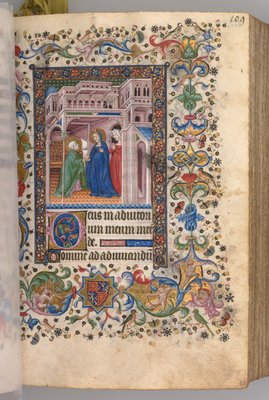 Deus in adiutori
um meum inte
de.
Domine ad adiuuandu